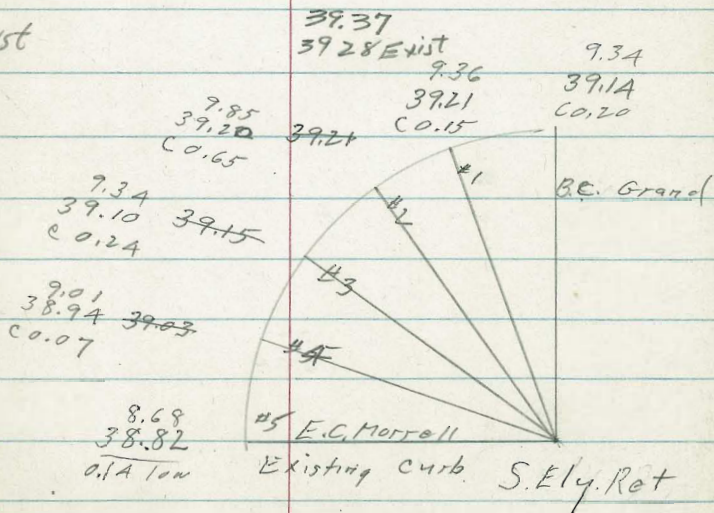 st
39.37
39 28 Exist
9.34
39.14
C0.20
9.36
39.21
C0.15
9.85
39.20 39.21
C0.65
#1
B.C. Grand
9.34
39.10 39.15
C 0.24
#2
#3
9.01
38.94 39.03
C0.07
#4
8.68
38.82
0.14 low
#5 E.C. Morrell
Existing Curb
S.Ely.Ret